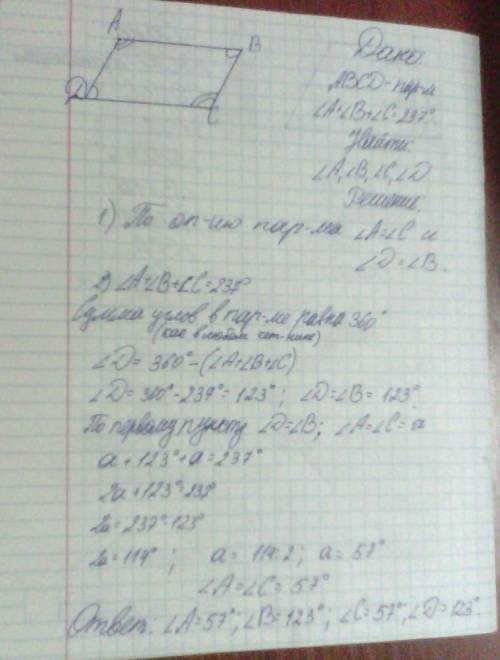 A
B
D
C
Дано:
ABCD-пар-м
∠A+∠B+∠C=237°
Найти:
∠A,∠B,∠C,∠D
Решение:
1) По оп-ию пар-ма ∠A=∠C и
∠D=∠B.
2) ∠A+∠B+∠C=237°
Сумма углов в пар-ме равна 360°
(как в любом чет-нике)
∠D=360°-(∠A+∠B+∠C)
∠D=360°-237°=123°; ∠D=∠B=123°.
По первому пункту ∠D=∠B; ∠A=∠C=a
a+123°+a=237°
2a+123°=237°
2a=237°-123°
2a=114°; a=114:2; a=57°
∠A=∠C=57°
Ответ: ∠A=57°; ∠B=123°; ∠C=57°; ∠D=123°.